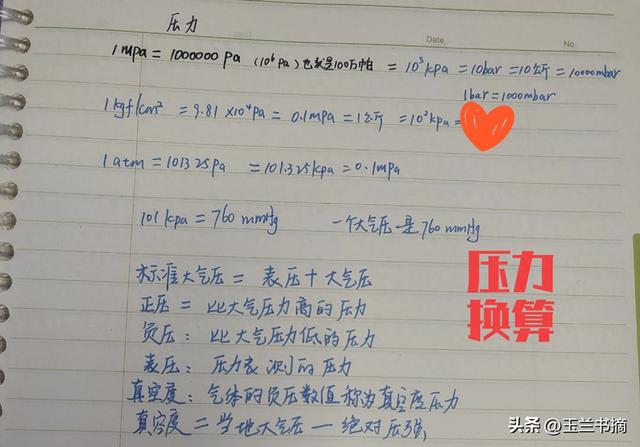 压力
Date
No.
1mpa = 1000000pa (10⁶pa) 也就是100万帕 = 10³kpa = 10bar = 10公斤 = 10000mbar
1bar = 1000mbar
1kgf/cm² = 9.81×10⁴pa = 0.1mpa = 1公斤 = 10²kpa =
1atm = 101325pa = 101.325kpa = 0.1mpa
101kpa = 760mmHg 一个大气压是760mmHg
标准大气压 = 表压+大气压
正压 = 比大气压力高的压力
负压: 比大气压力低的压力
表压: 压力表测的压力
真空度: 气体的负压数值称为真空度压力
真空度 = 当地大气压 — 绝对压强
压力
换算
头条 @玉兰书摘